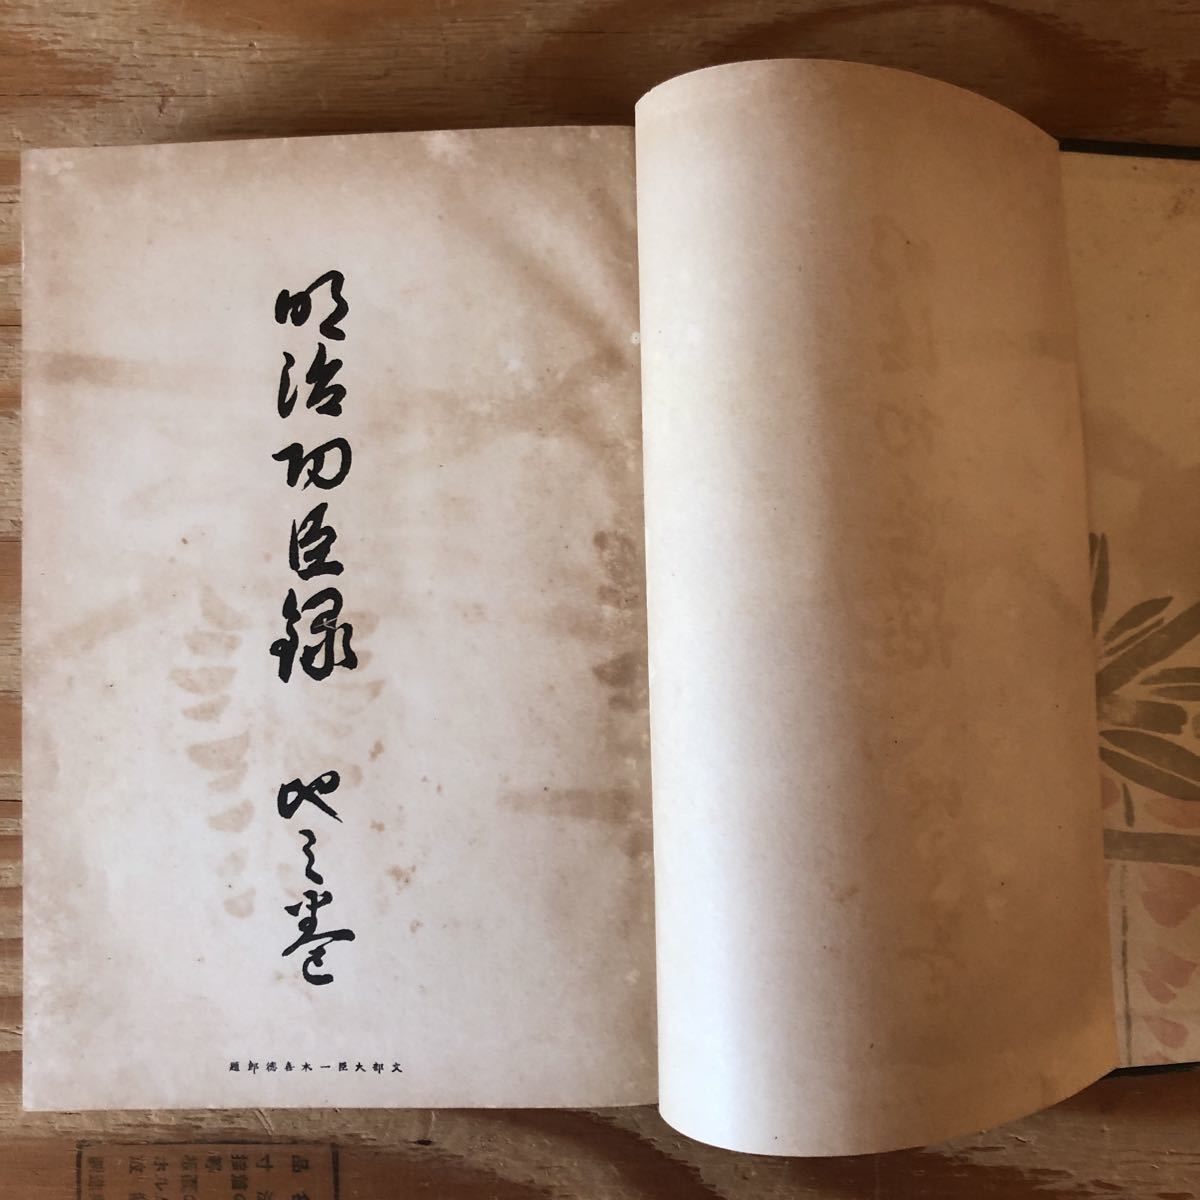 明治功臣録 地之巻
文部大臣一木喜徳郎題